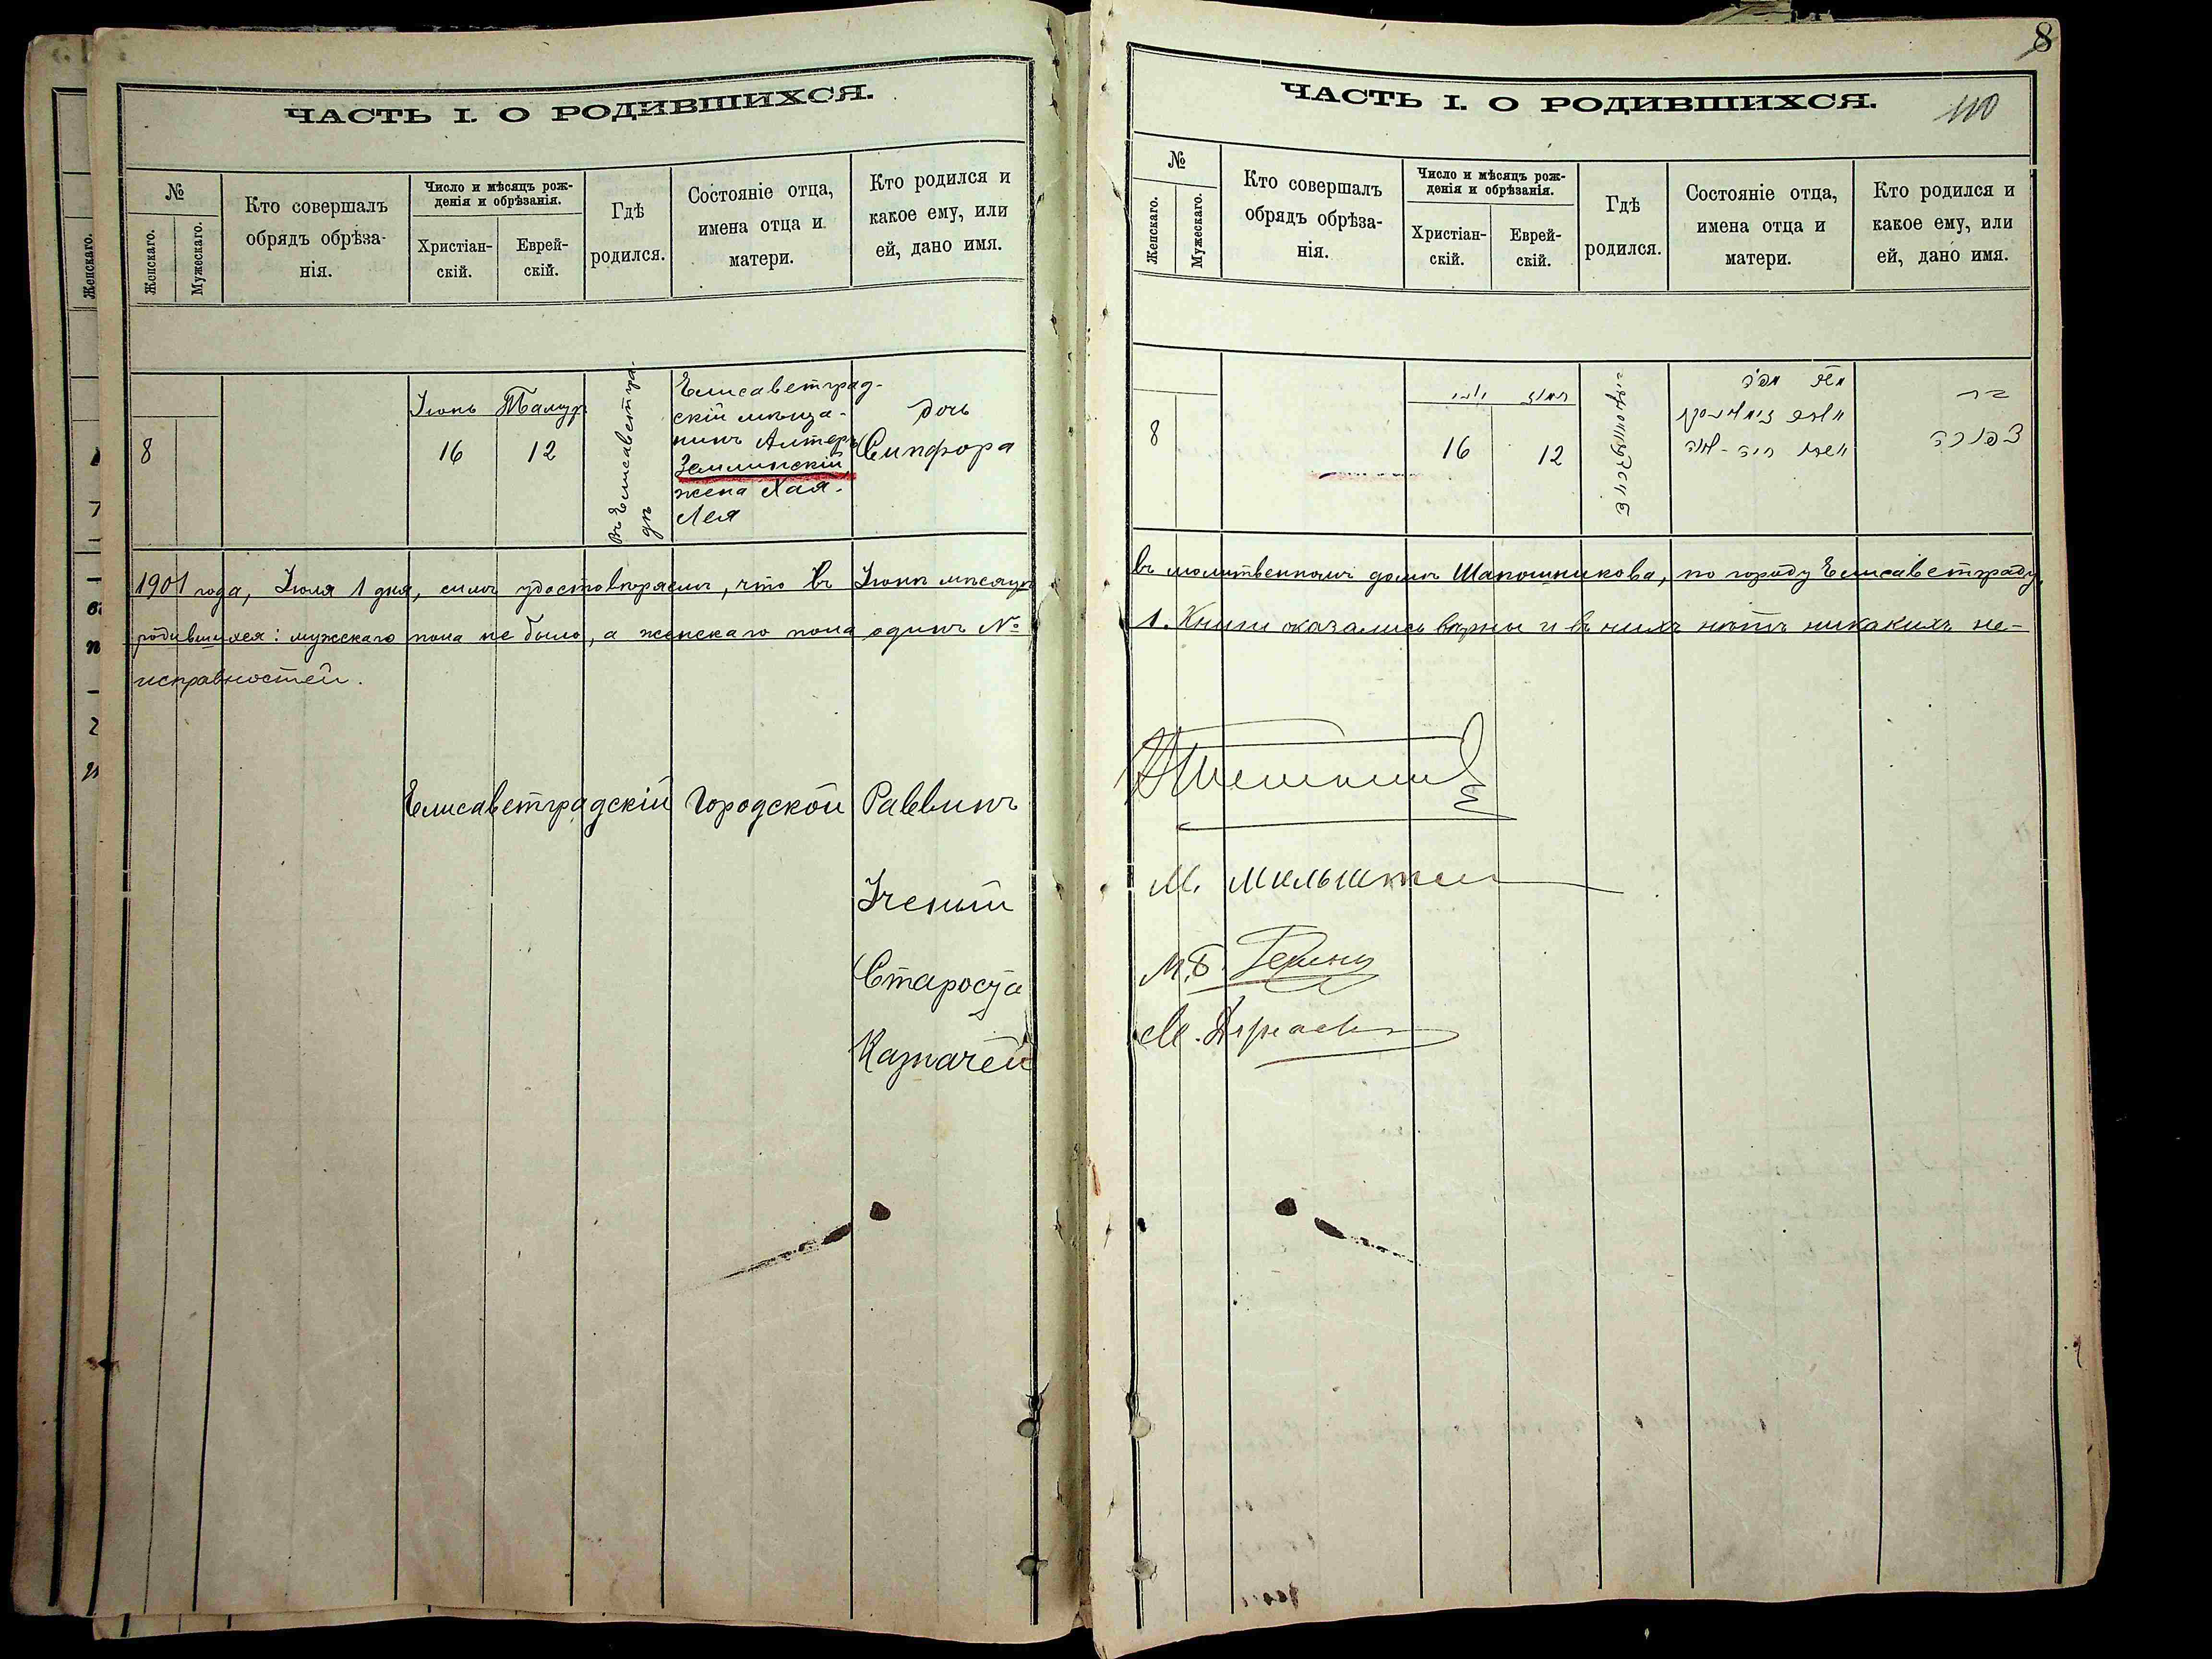 ЧАСТЬ I. О РОДИВШИХСЯ.
№
Женскаго.
Мужескаго.
Кто совершалъ
обрядъ обрѣза-
нія.
Число и мѣсяцъ рож-
денія и обрѣзанія.
Христіан-
скій.
Еврей-
скій.
Гдѣ
родился.
Состояніе отца,
имена отца и
матери.
Кто родился и
какое ему, или
ей, дано имя.
8
Іюнь
16
Тамуз
12
Въ Елисаветгра-
дѣ
Елисаветград-
скій мѣща-
нинъ Алтеръ
Землинскій,
жена Хая-
Лея
дочь
Сипфора
1901 года, Іюля 1 дня, симъ удостовѣряемъ, что въ Іюнѣ мѣсяцѣ
родившихся: мужскаго пола не было, а женскаго пола одинъ №
исправностей.
Елисаветградскій Городской Раввинъ
Ученый
Староста
Казначей
Женскаго.
8
110
ЧАСТЬ I. О РОДИВШИХСЯ.
№
Женскаго.
Мужескаго.
Кто совершалъ
обрядъ обрѣза-
нія.
Число и мѣсяцъ рож-
денія и обрѣзанія.
Христіан-
скій.
Еврей-
скій.
Гдѣ
родился.
Состояніе отца,
имена отца и
матери.
Кто родился и
какое ему, или
ей, дано имя.
8
יוני
16
תמוז
12
בת
צפורה
въ молитвенномъ домѣ Шапошникова, по городу Елисаветграду,
1. Книги оказались вѣрны и въ нихъ нѣтъ никакихъ не-
М.
М.Б.
М.